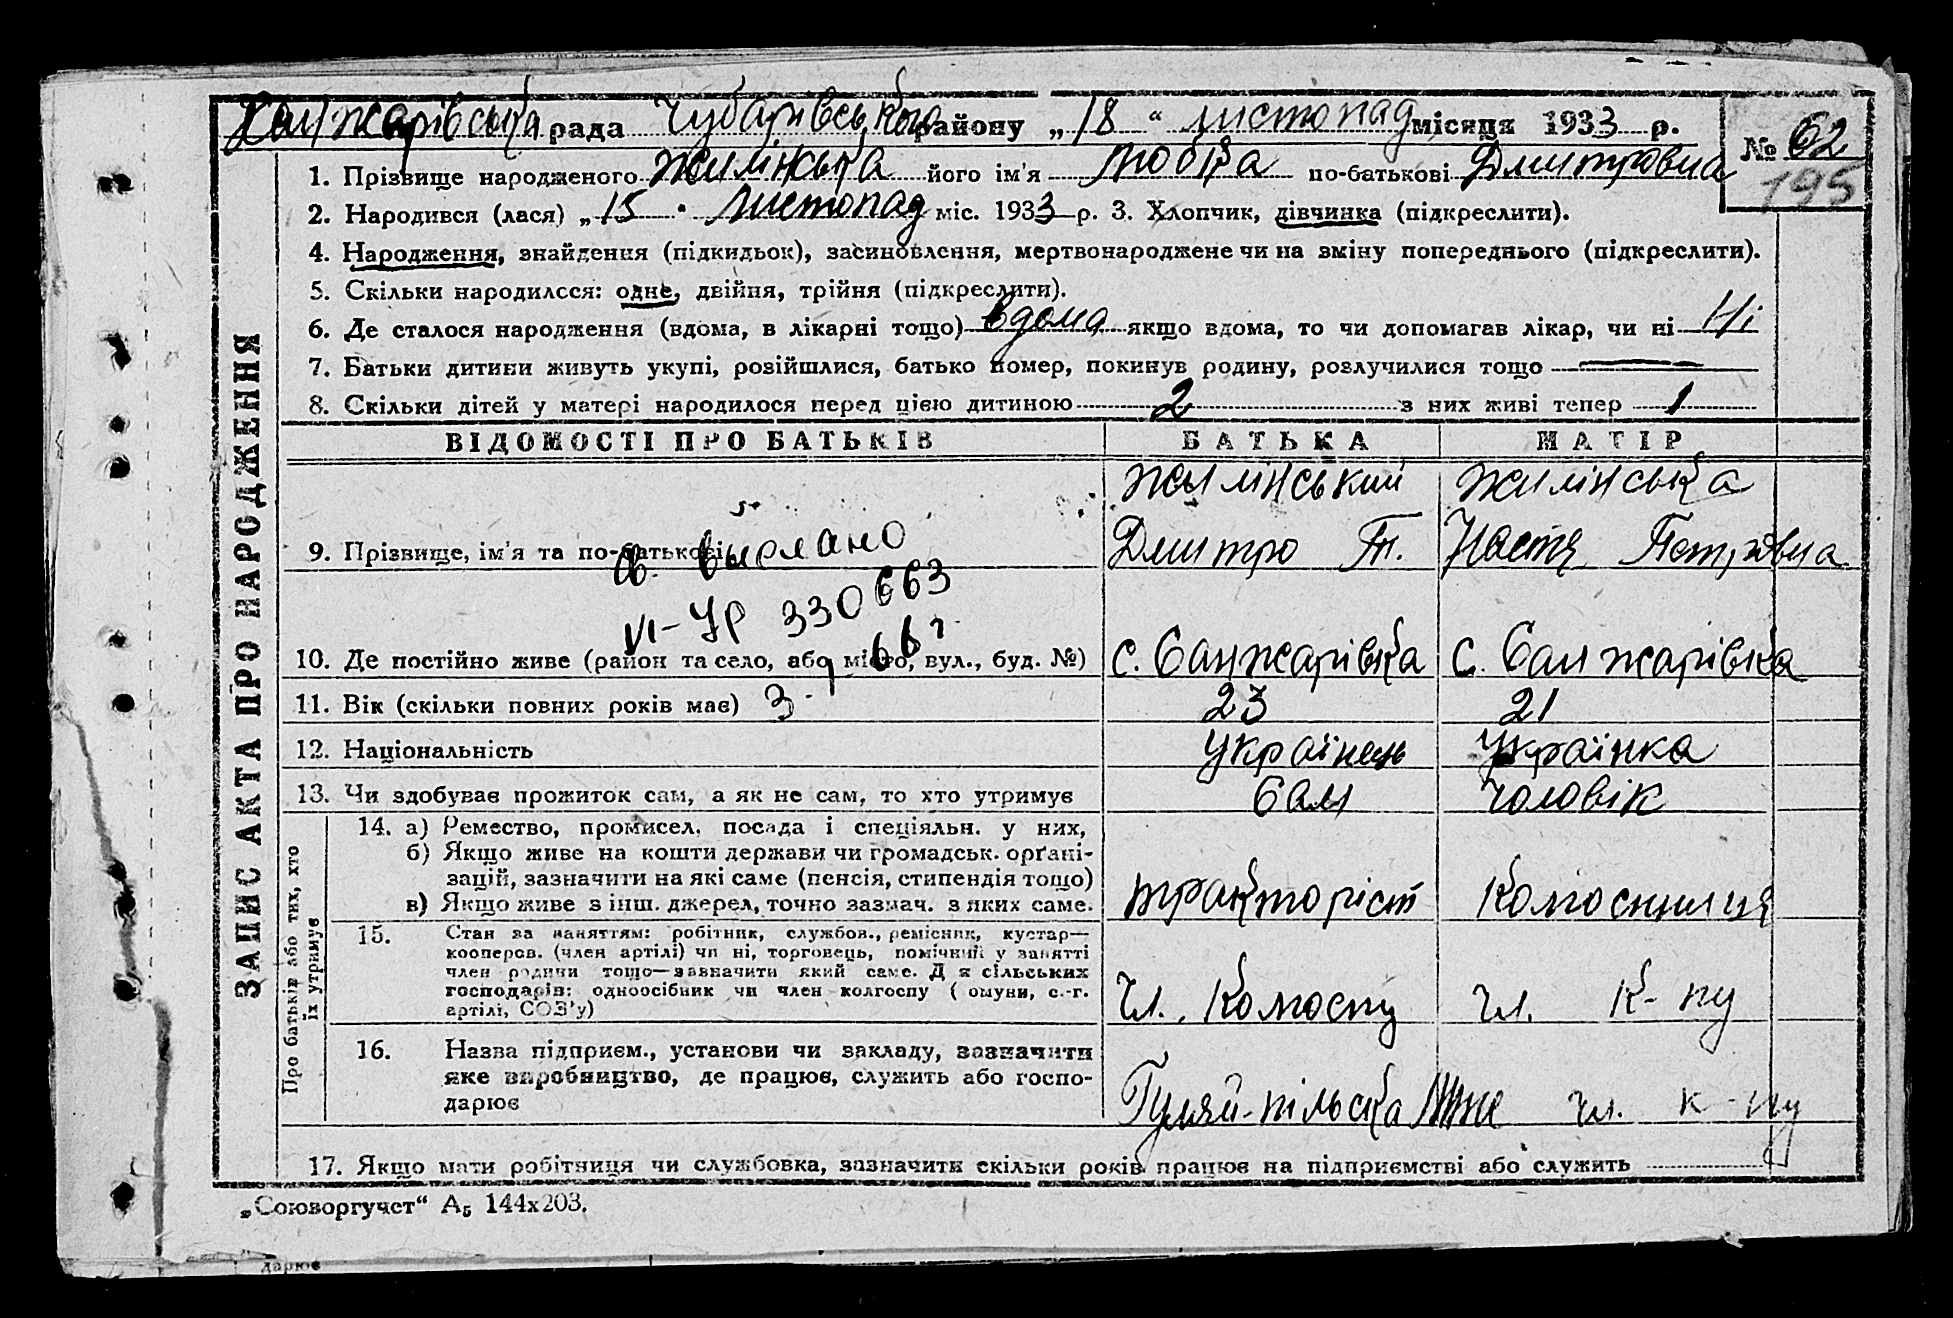 Санжарівська рада Чубарівського району „18“ листопад місяця 1933 р.
№ 62
195
1. Прізвище народженого Жилінська його ім'я Любка по-батькові Дмитровна
2. Народився (лася) „15“ Листопад міс. 1933 р. 3. Хлопчик, дівчинка (підкреслити).
4. Народження, знайдення (підкидьок), засиновлення, мертвонароджене чи на зміну попереднього (підкреслити).
5. Скільки народилося: одне, двійня, трійня (підкреслити).
6. Де сталося народження (вдома, в лікарні тощо) вдома якщо вдома, то чи допомагав лікар, чи ні Ні
7. Батьки дитини живуть укупі, розійшлися, батько помер, покинув родину, розлучилися тощо —
8. Скільки дітей у матері народилося перед цією дитиною 2 з них живі тепер 1
ЗАПИС АКТА ПРО НАРОДЖЕННЯ
ВІДОМОСТІ ПРО БАТЬКІВ БАТЬКА МАТІР
Жилінський Жилінська
9. Прізвище, ім'я та по-батькові Дмитро Настя Петровна
св. выслано
VI-УР 330663
10. Де постійно живе (район та село, або місто, вул., буд. №) с. Санжарівка с. Санжарівка
11. Вік (скільки повних років має) 23 21
12. Національність Українець Українка
13. Чи здобуває прожиток сам, а як не сам, то хто утримує Сам Чоловік
Про батьків або тих, хто їх утримує
14. а) Ремество, промисел, посада і спеціяльн. у них,
б) Якщо живе на кошти держави чи громадськ. орґані-
зацій, зазначити на які саме (пенсія, стипендія тощо)
в) Якщо живе з інш. джерел, точно зазнач. з яких саме. тракторіст Колгоспниця
15. Стан за наняттям: робітник, службов., ремісник, кустар—
кооперов. (член артілі) чи ні, торговець, помічний у занятті
член родини тощо—зазначити який саме. Для сільських
господарів: одноосібник чи член колгоспу (комуни, с.-г.
артілі, СОЗ'у) Чл. Колгоспу чл. к-пу
16. Назва підприєм., установи чи закладу, зазначити
яке виробництво, де працює, служить або госпо-
дарює Гуляй-пільська чл. к-пу
17. Якщо мати робітниця чи службовка, зазначити скільки років працює на підприємстві або служить
„Союзоргучет“ А₅ 144х203.
дарює